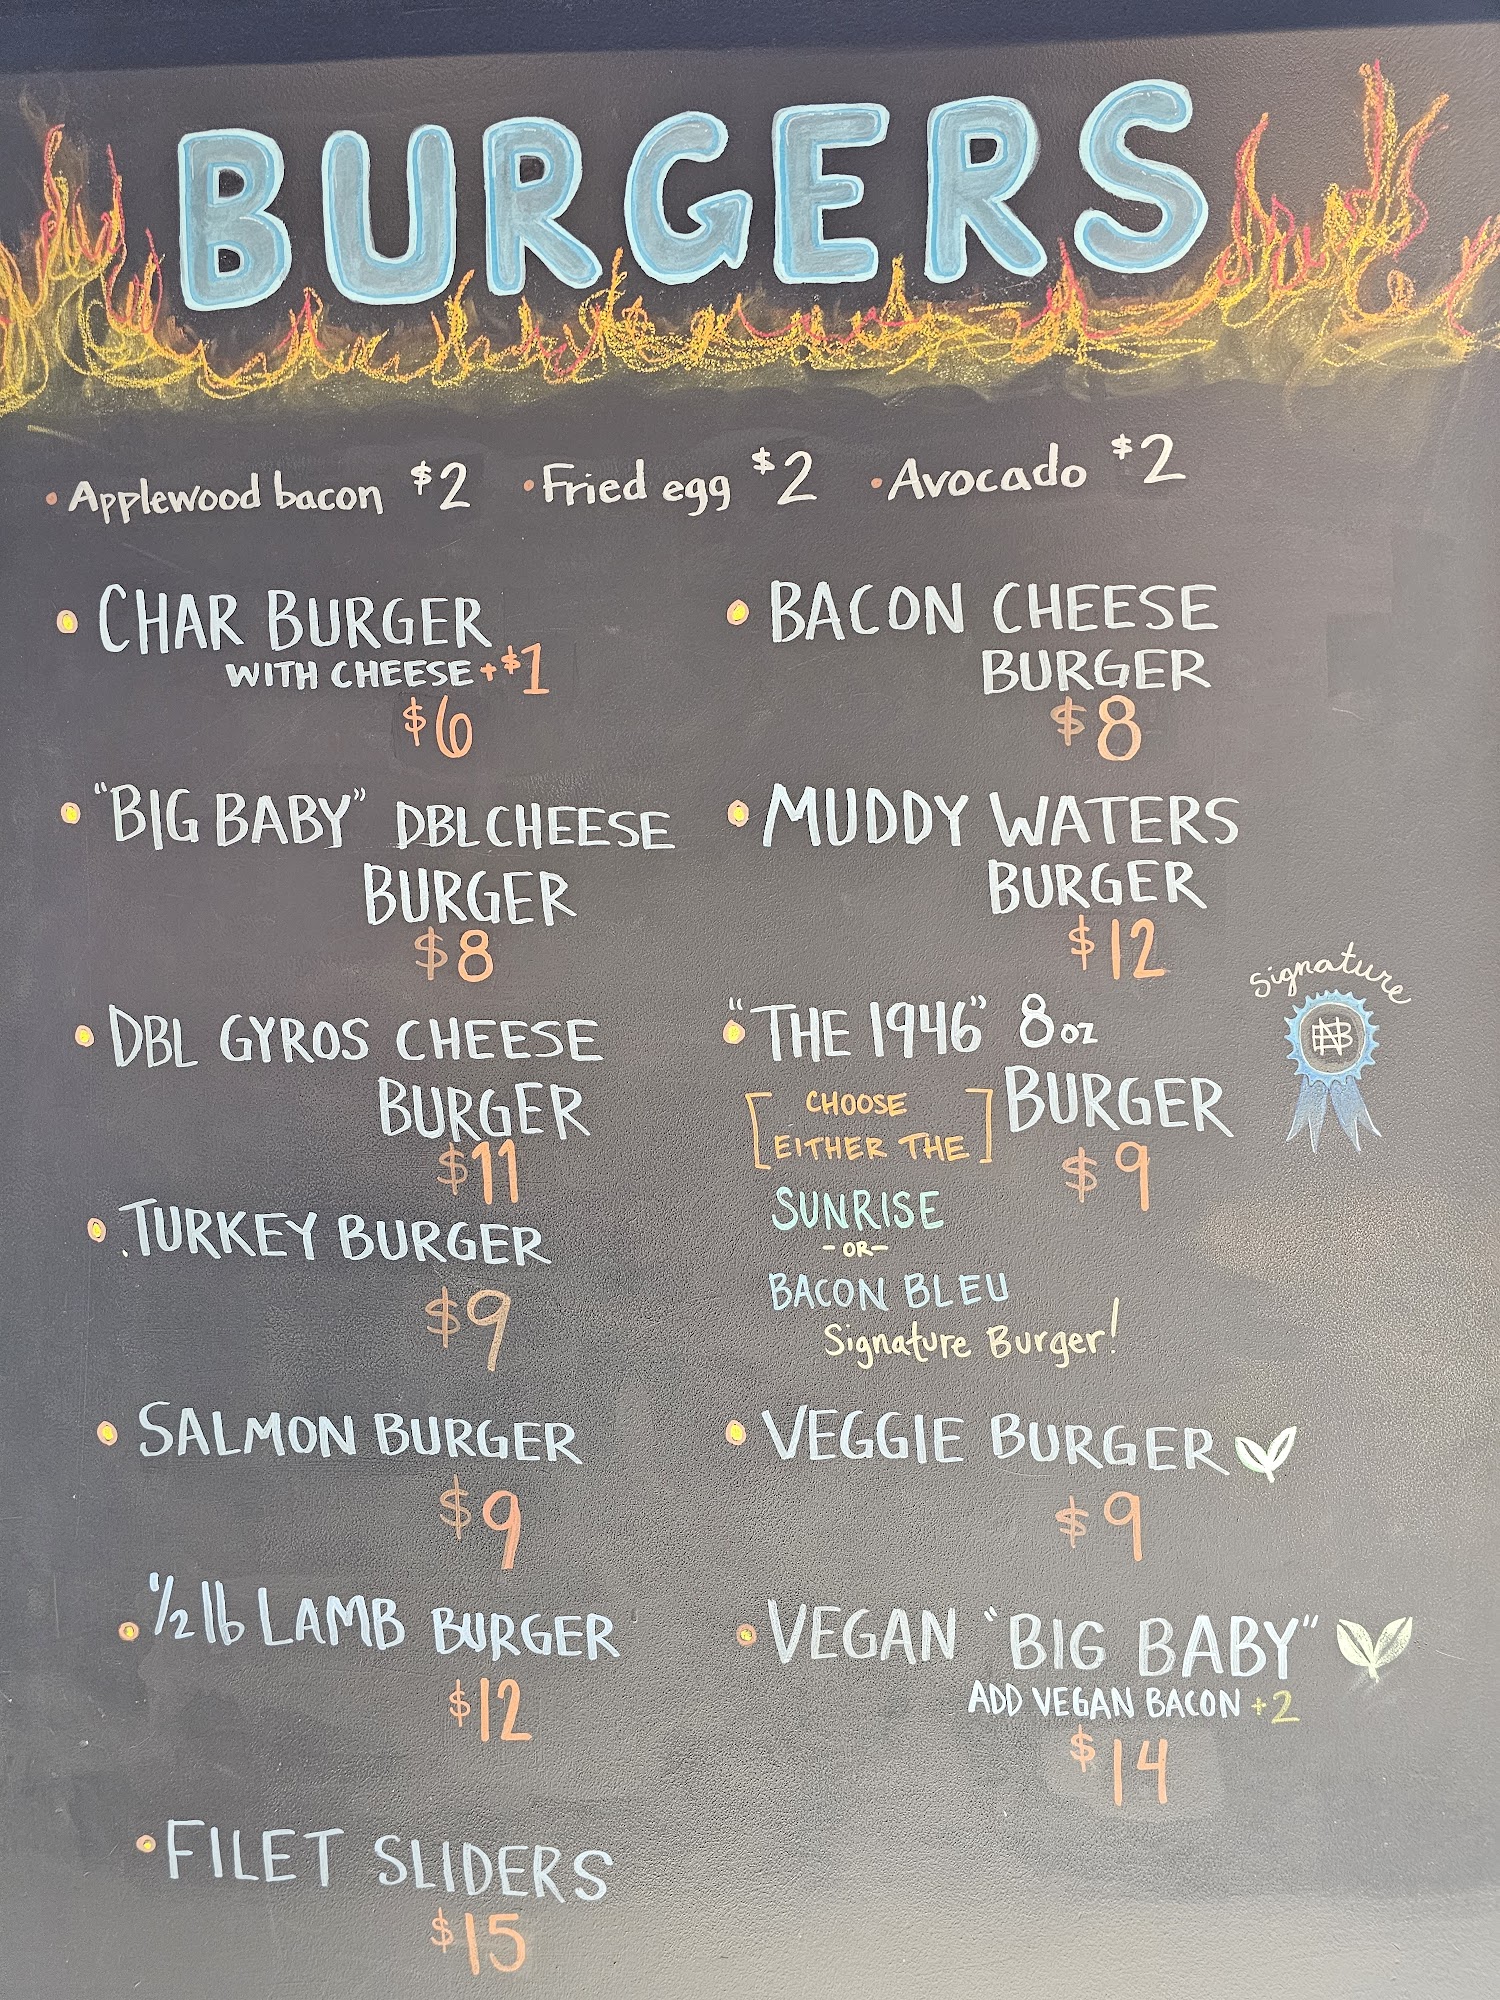 BURGERS
• Applewood bacon $2 • Fried egg $2 • Avocado $2
• CHAR BURGER
WITH CHEESE +$1
$6
• "BIG BABY" DBL CHEESE
BURGER
$8
• DBL GYROS CHEESE
BURGER
$11
• TURKEY BURGER
$9
• SALMON BURGER
$9
• 1/2 lb LAMB BURGER
$12
• FILET SLIDERS
$15
• BACON CHEESE
BURGER
$8
• MUDDY WATERS
BURGER
$12
• "THE 1946" 8oz
BURGER
$9
[CHOOSE
EITHER THE]
SUNRISE
-OR-
BACON BLEU
Signature Burger!
Signature
• VEGGIE BURGER
$9
• VEGAN "BIG BABY"
ADD VEGAN BACON +2
$14